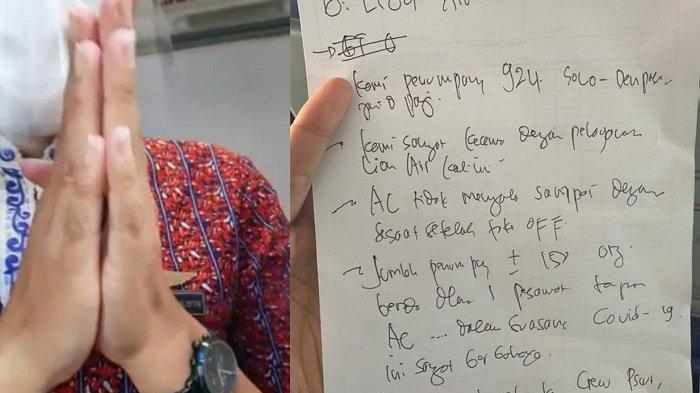 D. Lion Air
Kami penumpang 924. Solo - Denpasar
Kami sangat kecewa dengan pelayanan
Lion Air kali ini
AC tidak menyala sampai dengan
sesaat setelah take OFF.
Jumlah penumpang ± 150 org
1 pesawat tanpa
AC .... dalam suasana Covid-19
ini sangat berbahaya.
Crew